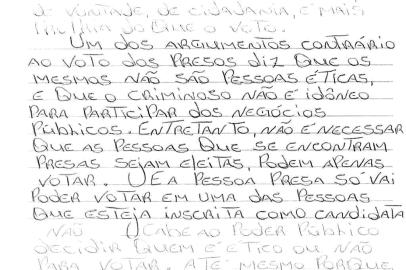 DE VONTADE, DE CIDADANIA, É MAIS
DO QUE O VOTO.
UM DOS ARGUMENTOS CONTRÁRIO
AO VOTO DOS PRESOS DIZ QUE OS
MESMOS NÃO SÃO PESSOAS ÉTICAS,
E QUE O CRIMINOSO NÃO É IDÔNEO
PARA PARTICIPAR DOS NEGÓCIOS
PÚBLICOS. ENTRETANTO, NÃO É NECESSAR
QUE AS PESSOAS QUE SE ENCONTRAM
PRESAS SEJAM ELEITAS, PODEM APENAS
VOTAR. E A PESSOA PRESA SÓ VAI
PODER VOTAR EM UMA DAS PESSOAS
QUE ESTEJA INSCRITA COMO CANDIDATA
NÃO CABE AO PODER PÚBLICO
DECIDIR QUEM É ÉTICO OU NÃO
PARA VOTAR. ATÉ MESMO PORQUE,